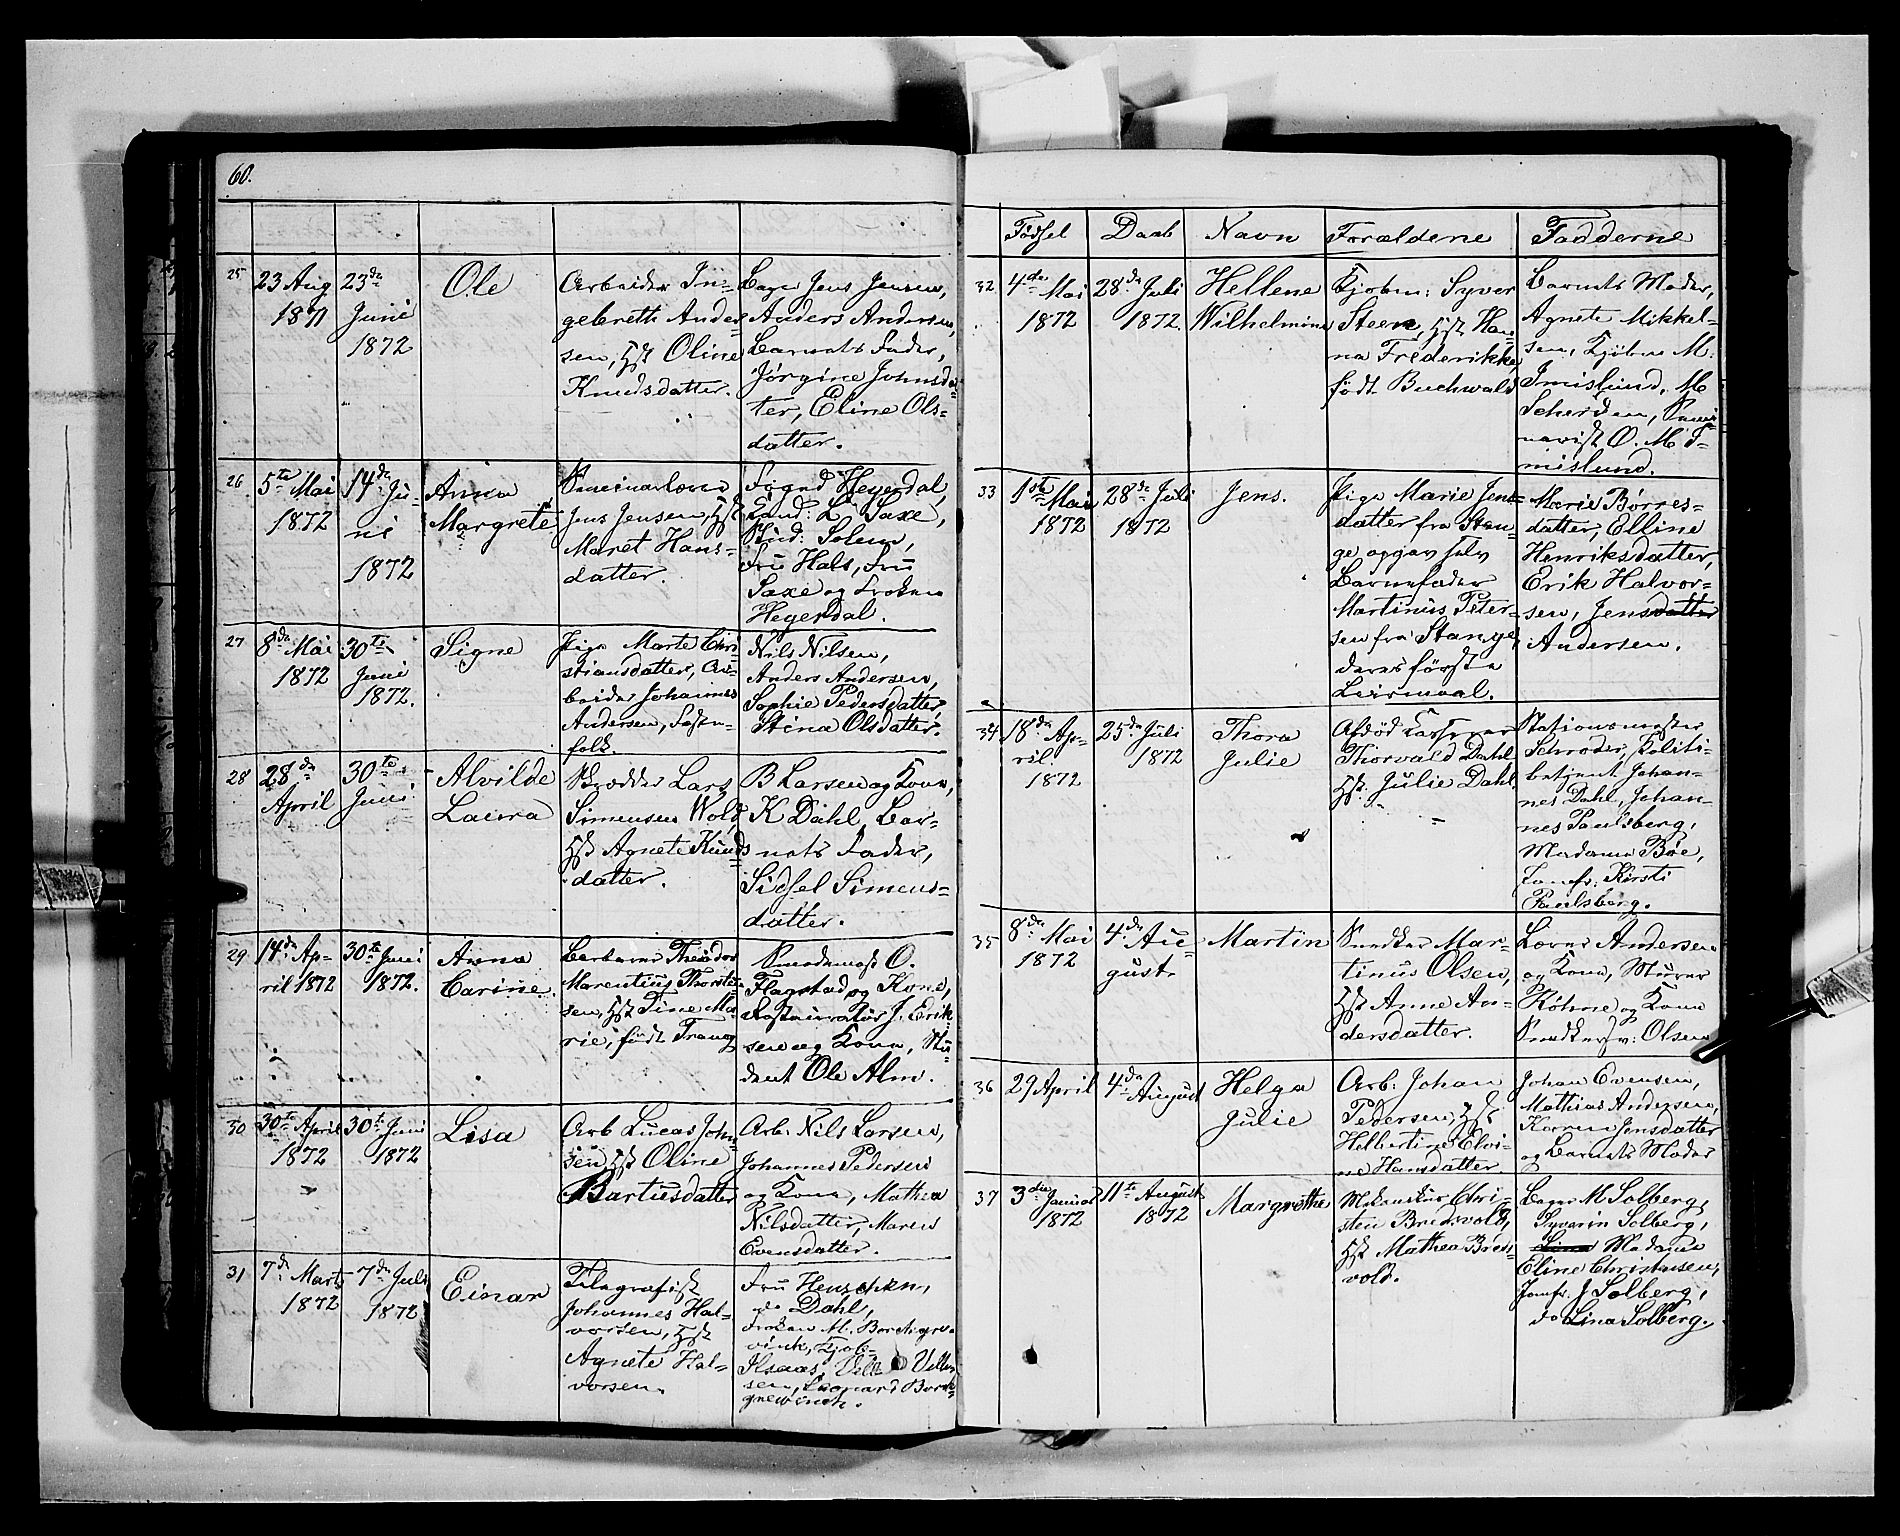 60.
25
23 Aug
1871
23de
Juni
1872
Ole
Arbeider In-
gebreth Ander
sen, Hst Oline
Knudsdatter.
Bager Jens Jensen,
Anders Andersen,
Barnets Fader,
Jørgine Johnsdat-
ter, Eline Ols-
datter.
26
5te Mai
1872
14de Ju-
ni
1872
Anna
Margrete
Jens Jensen, Hst
Maret Hans-
datter.
Fogd Heyerdal,
Kand: L. Saxe,
Solem,
Fru Hals, Fru
Saxe og Frøken
Heyerdal.
27
8de Mai
1872
30te
Juni
1872.
Signe
Pige Marte Chri-
stiansdatter, Ar-
beider Johannes
Andersen, Fæste-
folk.
Nils Nilsen,
Anders Andersen,
Sophie Pedersdatter,
Stina Olsdatter.
28
28de
April
30te
Juni
Alvilde
Laura
Lars
Simensen Wold,
Hst Agnete Knuds
datter.
B Larsen og Kone,
K Dahl, Bar-
nets Fader,
Sidsel Simens-
datter.
29
14de Ap-
ril 1872
30te Juni
1872.
Anna
Carine.
Theodor
Marentius Thorste-
sen, Hst Tine Ma-
rie, født Trang
O.
Flagstad og Kone,
J. Erik
sen og Kone, Stu-
dent Ole Alm.
30
30te April
1872
30te Juni
1872
Lisa
Arb Lucas John
sen, Hst Oline
Bartusdatter
Arb: Nils Larsen,
Johannes Pedersen
og Kone, Mathea
Nilsdatter, Maren
Evensdatter.
31
7de Marts
1872
7de Juli
1872
Einar
Telegrafist
Johannes Hal-
vorsen, Hst
Agnete Hal-
vorsen.
Fru Henschen,
do Dahl,
Frøken M. Borchgre-
vink, Kjøb-
sen, Leonard Borch-
grewinck.
Fødsel
Daab
Navn
Forældrene
Fadderne
32
4de Mai
1872
28de Juli
1872.
Hellene
Wilhelmine
Kjøbm: Syver
Steen, Hst Han
na Frederikke,
født Buchwald
Barnets Moder,
Agnete Mikkel-
sen, Kjøbm M.
Imislund, M
Semi-
narist O. M I-
mislund.
33
1ste Mai
1872
28de Juli
1872
Jens.
Pige Marie Jens-
datter fra Stan-
ge opgav selv
Barnefader
Martinus Peter-
sen fra Stange,
deres første
Leiermaal.
Marie Børres-
datter, Elline
Henriksdatter,
Erik Halvor-
sen, Jensdatter
Andersen.
34
18de Ap-
ril
1872
25de Juli
1872
Thora
Julie
Afdød Kasserer
Thorvald Dahl
Hst: Julie Dahl.
Stationsmester
Schrøder, Politi-
betjent Johan-
nes Dahl, Johan-
nes Paulsberg,
Madame Bøe,
Jomfr: Kirsti
Paulsberg.
35
8de Mai
1872
4de Au
gust.
Martin
Snedker Mar-
tinus Olsen,
Hst Anne An-
dersdatter.
Lærer Andersen
og Kone, Murer
Røhne og Kone
Snedkersv: Olsen
36
29 April
4de August
Helga
Julie
Arb: Johan
Pedersen, Hst
Helbertine Elvi-
ne Hansdatter
Johan Evensen,
Mathias Andersen,
Karen Jensdatter
og Barnets Moder
37
3die Januar
1872
11te August
1872
Margrethe
Mekanikus Chri-
sten Bredvold,
Hst Mathea Bred-
vold.
Bager M Solberg,
Syverin Solberg,
Lina Madame
Eline Christensen,
Jomfr. J Solberg,
do Lina Solberg.